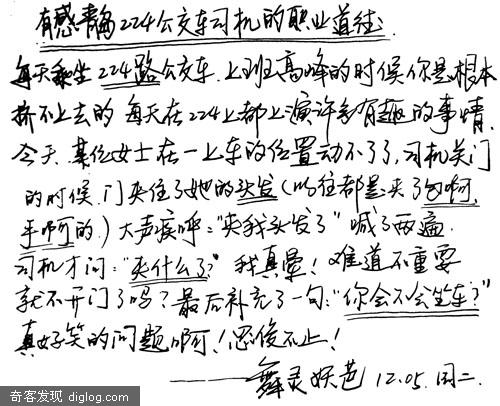 有感青岛224公交车司机的职业道德:
每天乘坐224路公交车,上班高峰的时候你是根本
挤不上去的 每天在224上都上演许多有趣的事情,
今天 某位女士在一上车的位置动不了了,司机关门
的时候 门夹住了她的头发(以往都是夹了包啊,
手啊的.)大声疾呼:"夹我头发了"喊了两遍
司机才问:"夹什么了?"我真晕!难道不重要
就不开门了吗?最后补充了一句:"你会不会坐车?"
真好笑的问题啊!忍俊不止!
——舞灵妖芭 12.05.周二.
奇客发现 diglog.com